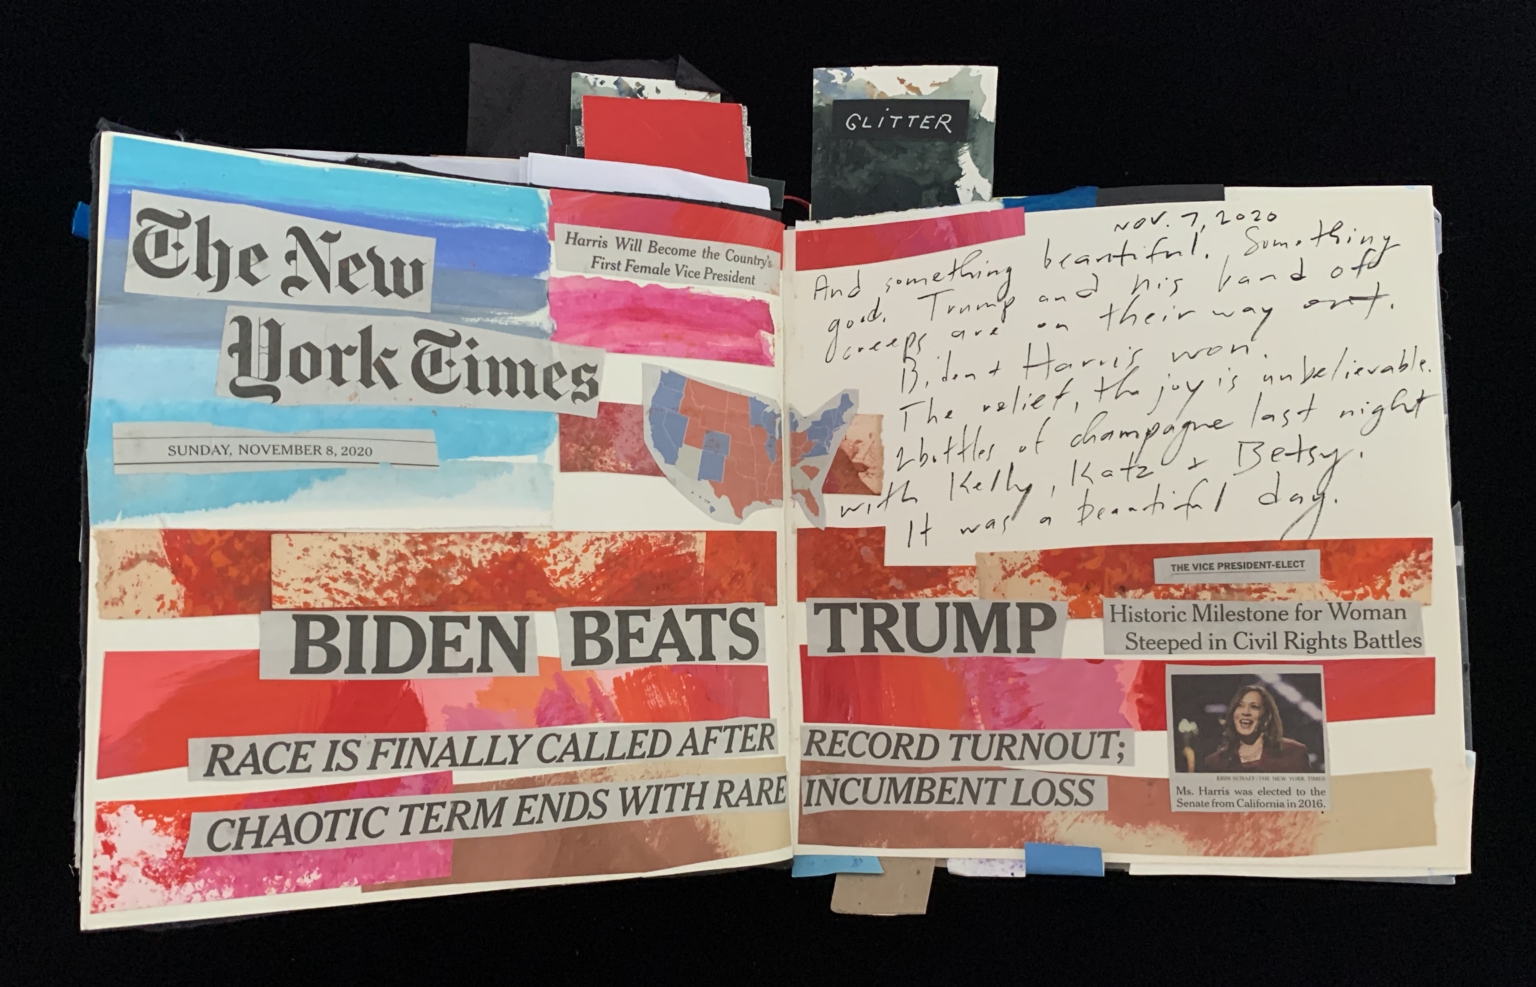 GLITTER
The New
York Times
SUNDAY, NOVEMBER 8, 2020
Harris Will Become the Country's
First Female Vice President
Nov. 7, 2020
And something beautiful. Something
good. Trump and his band of
creeps are on their way out.
Biden + Harris won.
The relief, the joy is unbelievable.
2 bottles of champagne last night
with Kelly, Katz + Betsy.
It was a beautiful day.
BIDEN BEATS TRUMP
RACE IS FINALLY CALLED AFTER RECORD TURNOUT;
CHAOTIC TERM ENDS WITH RARE INCUMBENT LOSS
THE VICE PRESIDENT-ELECT
Historic Milestone for Woman
Steeped in Civil Rights Battles
ERIN SCHAFF/THE NEW YORK TIMES
Ms. Harris was elected to the
Senate from California in 2016.